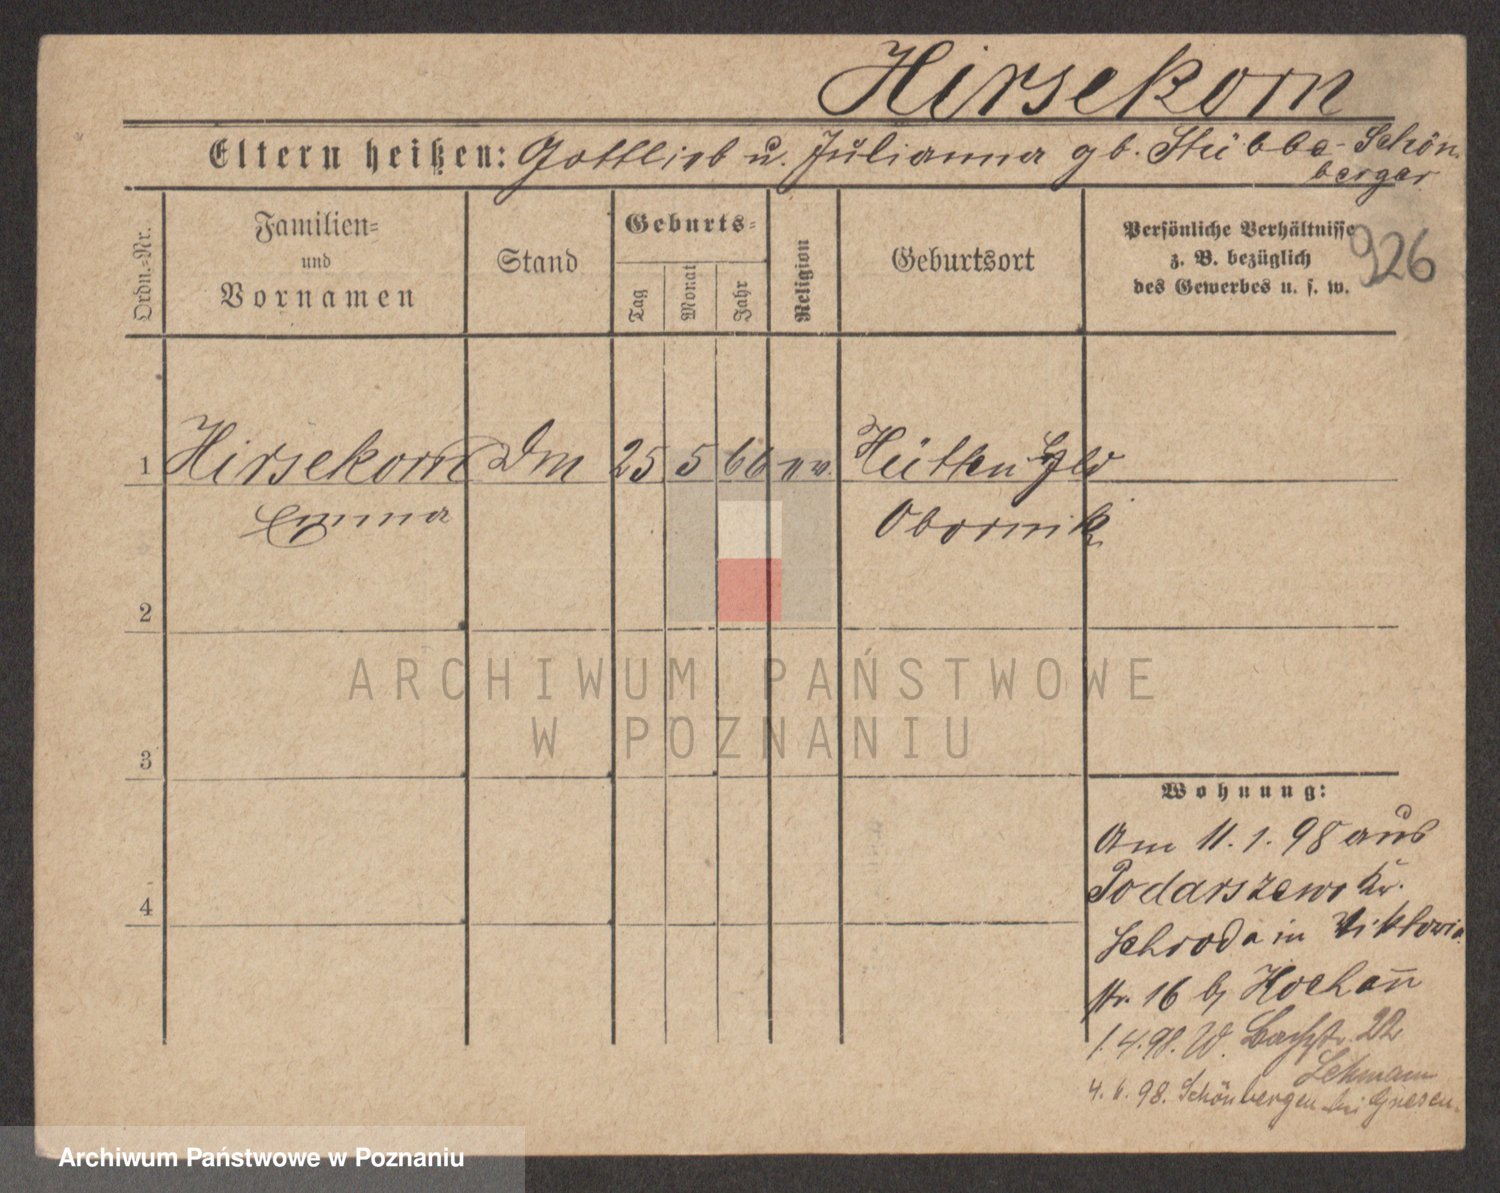 Hirsekorn
Eltern heißen: Gottlieb u. Julianna gb. Stübbe - Schön
berger
Ordn.-Nr.
Familien-
und
Vornamen
Stand
Geburts-
Tag
Monat
Jahr
Religion
Geburtsort
Persönliche Verhältnisse
z. B. bezüglich
des Gewerbes u. s. w.
926
1 Hirsekorn Dm 25 5 66 ev. Hütten Gld
Emma Obornik
2
ARCHIWUM PAŃSTWOWE
W POZNANIU
3
Wohnung:
Am 11.1.98 aus
Podarszewo Kr.
4
Schroda in Viktoria
str. 16 b/ Hochann
1.4.98. W. Bachstr. 22
Lehmann
4. 6. 98. Schönbergen bei Gnesen.
Archiwum Państwowe w Poznaniu